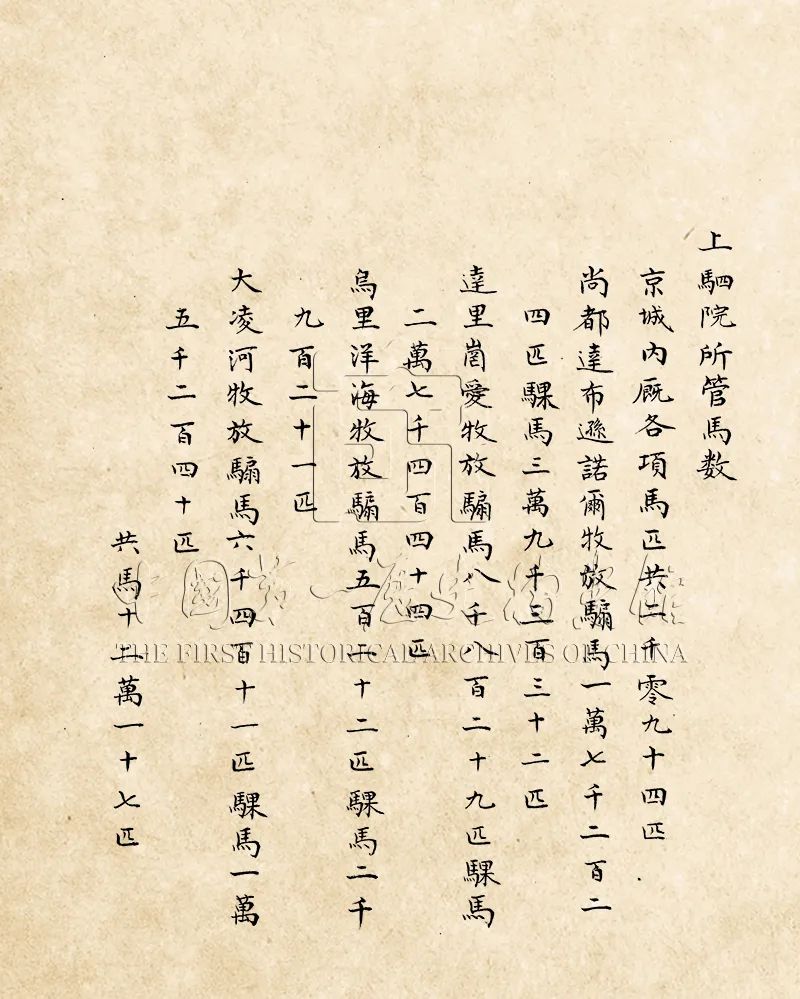 上駟院所管馬数
京城内厩各項馬匹共二千零九十四匹
尚都達布遜諾爾牧放騸馬一萬七千二百二
四匹騍馬三萬九千三百三十二匹
達里崗愛牧放騸馬八千八百二十九匹騍馬
二萬七千四百四十四匹
烏里洋海牧放騸馬五百二十二匹騍馬二千
九百二十一匹
大凌河牧放騸馬六千四百十一匹騍馬一萬
五千二百四十匹
共馬十二萬一十七匹
中國第一歷史檔案館
THE FIRST HISTORICAL ARCHIVES OF CHINA